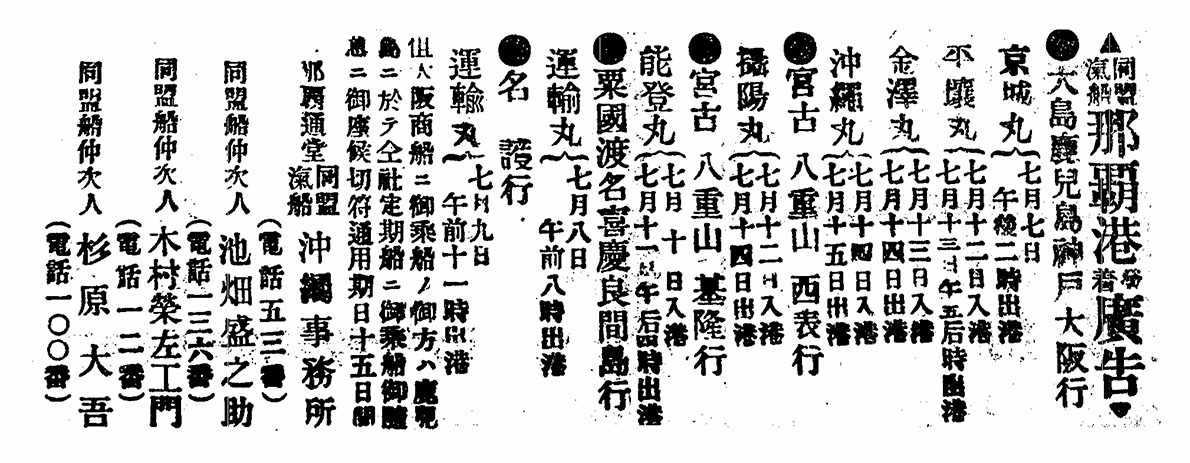 ▲同盟汽船那覇港發着廣告▼
●大島鹿兒島神戸大阪行
京城丸{七月七日午後二時出港
平壤丸{七月十二日入港 七月十三日午后五時出港
金澤丸{七月十三日入港 七月十四日出港
沖繩丸{七月十四日入港 七月十五日出港
●宮古八重山西表行
攝陽丸{七月十二日入港 七月十四日出港
●宮古八重山基隆行
能登丸{七月十日入港 七月十一日午后四時出港
●粟國渡名喜慶良間島行
運輸丸{七月八日午前八時出港
●名護行
運輸丸{七月九日午前十一時出港
但大阪商船ニ御乘船ノ御方ハ鹿兒
島ニ於テ仝社定期船ニ御乘船御隨
意ニ御座候切符通用期日十五日間
那覇西通堂 同盟汽船 沖繩事務所
(電話五三番)
同盟船仲次人 池畑盛之助
(電話一三六番)
同盟船仲次人 木村榮左工門
(電話一一二番)
同盟船仲次人 杉原大吾
(電話一〇〇番)